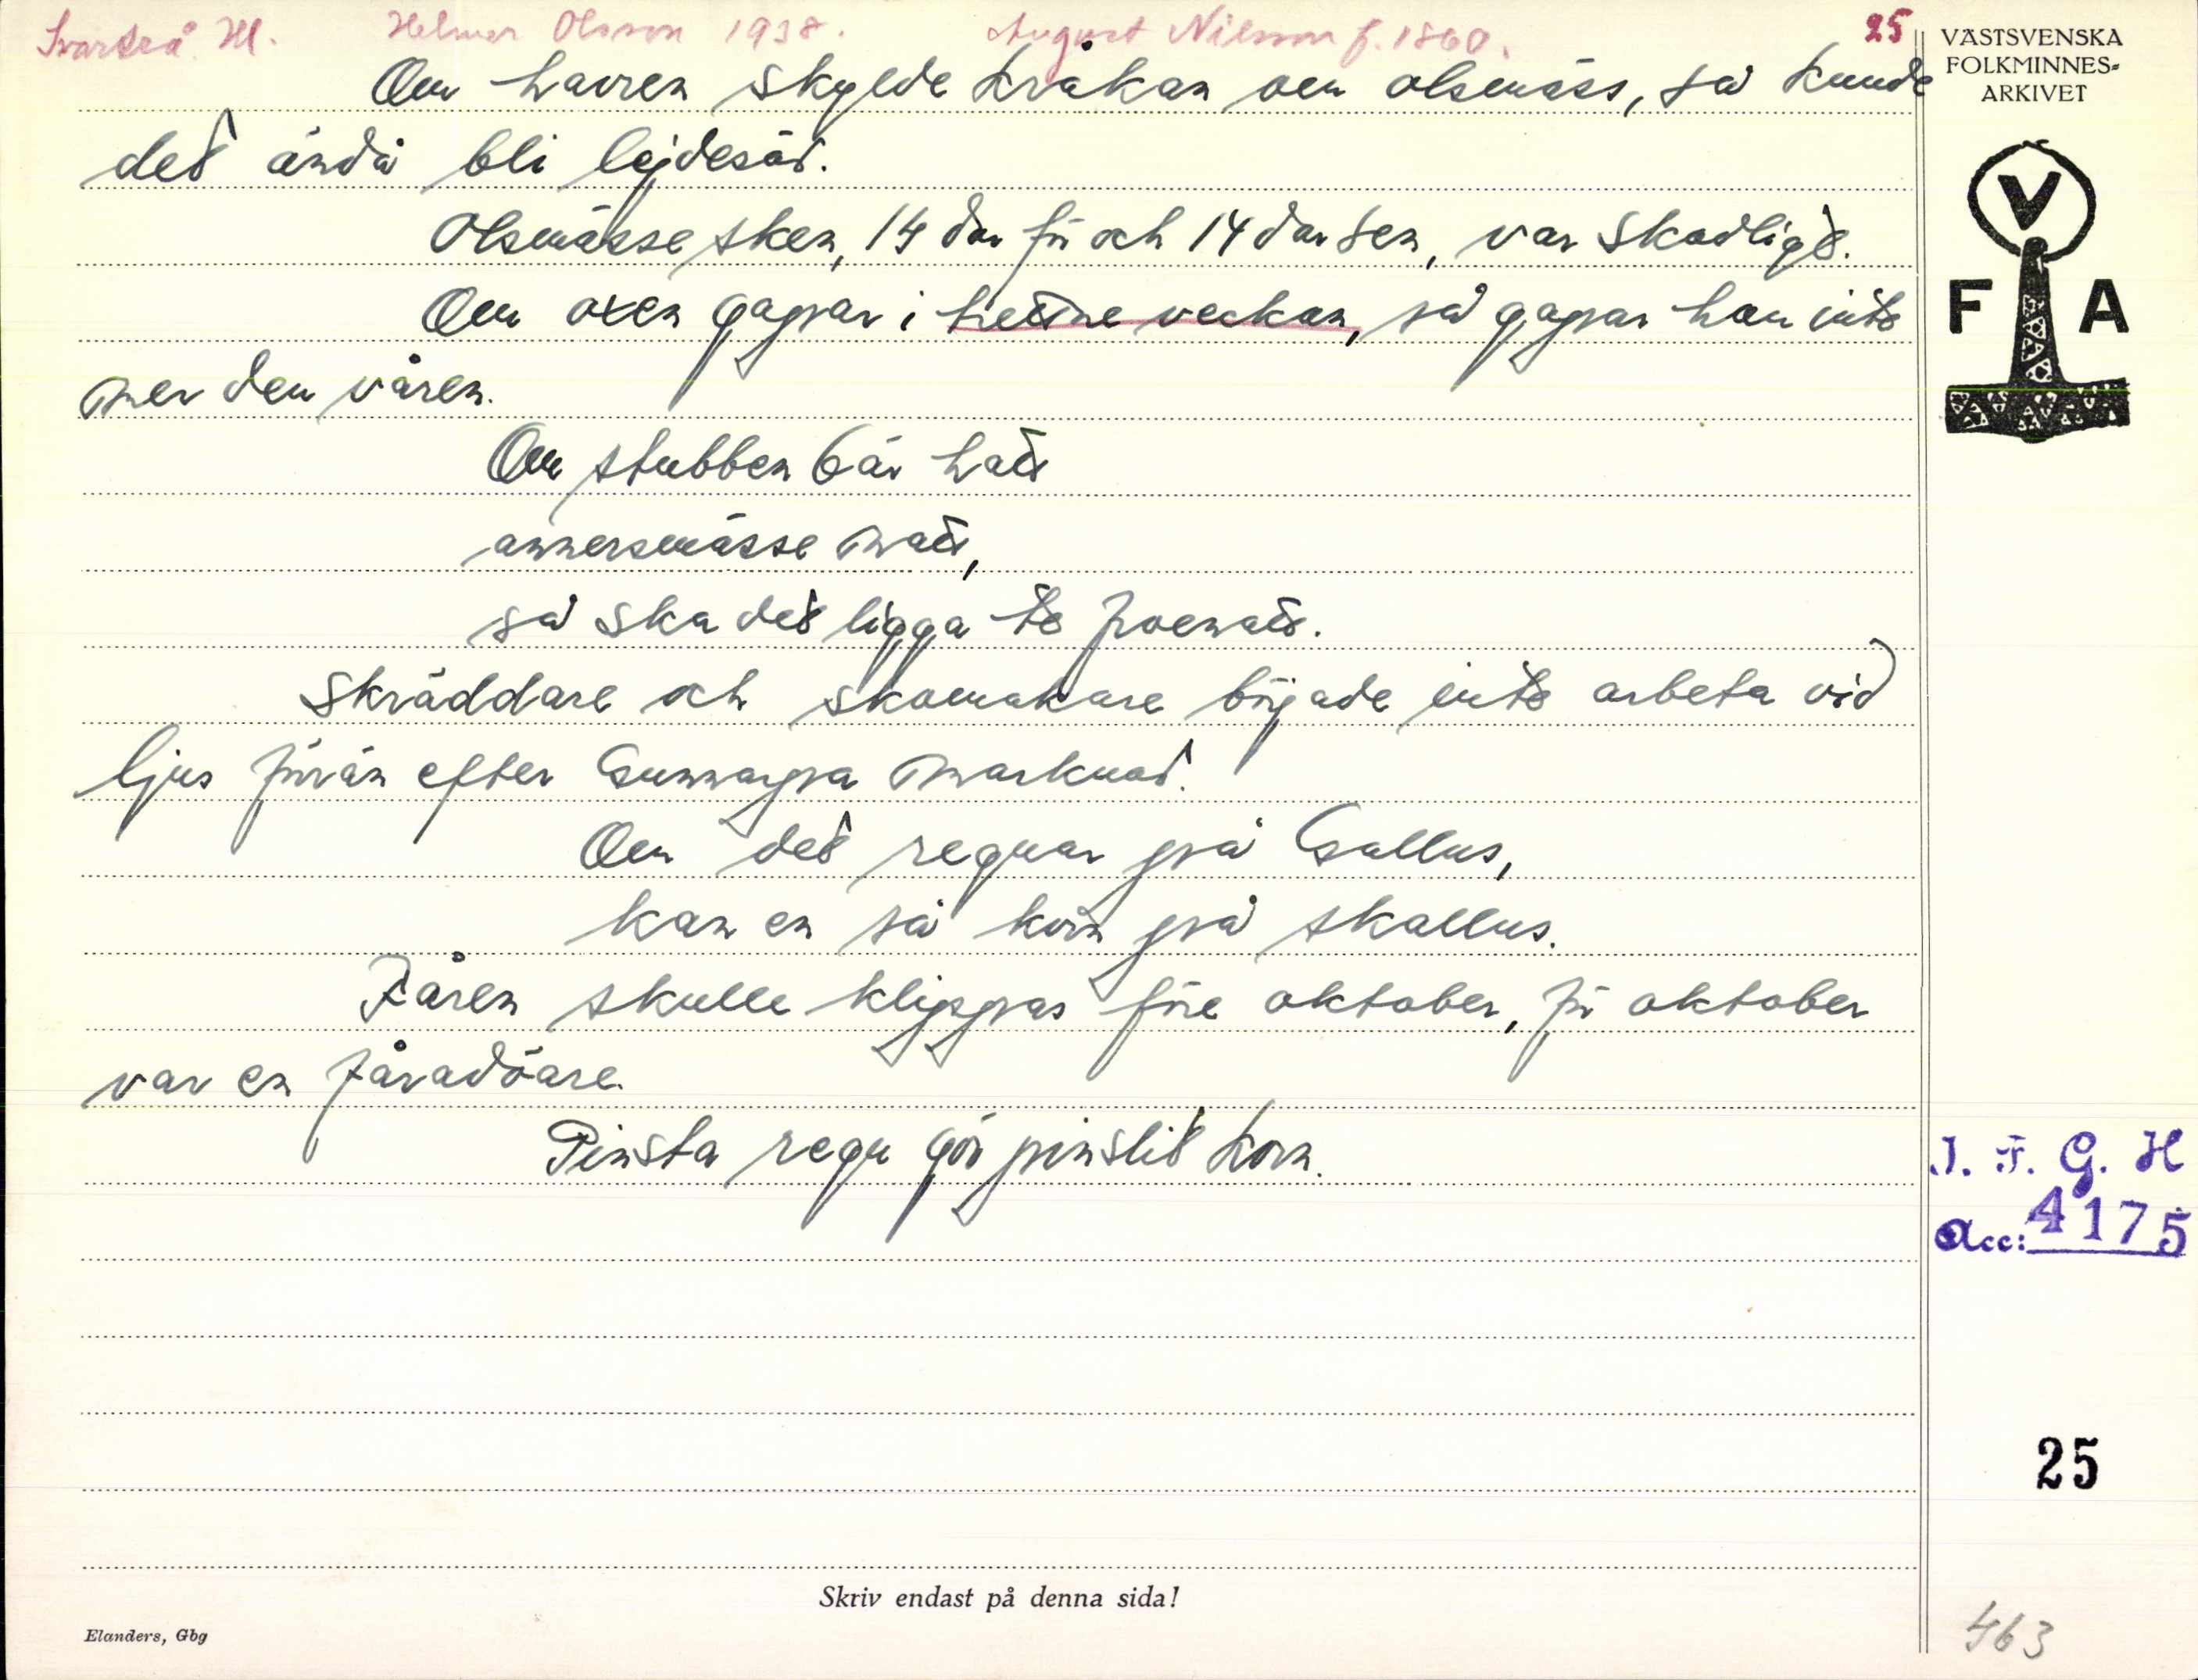 Svartrå Hl. Helmer Olsson 1938. August Nilsson f. 1860. 25
VÄSTSVENSKA
FOLKMINNES-
ARKIVET
Om havren skylde kråkan om olsmäss, så kunde
det ändå bli lejdesäd.
Olsmässe sken, 14 dar för och 14 dar sen, var skadligt.
Om oxen gapar i trettne veckan, så gapar han inte
mer den våren.
Om stubben bär hatt
annersmässe natt,
så ska det ligga te
Skräddare och skomakare böjade inte arbeta vid
ljus förrän efter Gunnarpa marknad.
Om det regnar på Gallus,
kan en så korn på skallus.
Fåren skulle klippas före oktober, för oktober
var en fåradöare.
Pinsta regn gör pinslit korn.
V
F A
I. F. G. H
Acc: 4175
25
463
Skriv endast på denna sida!
Elanders, Gbg